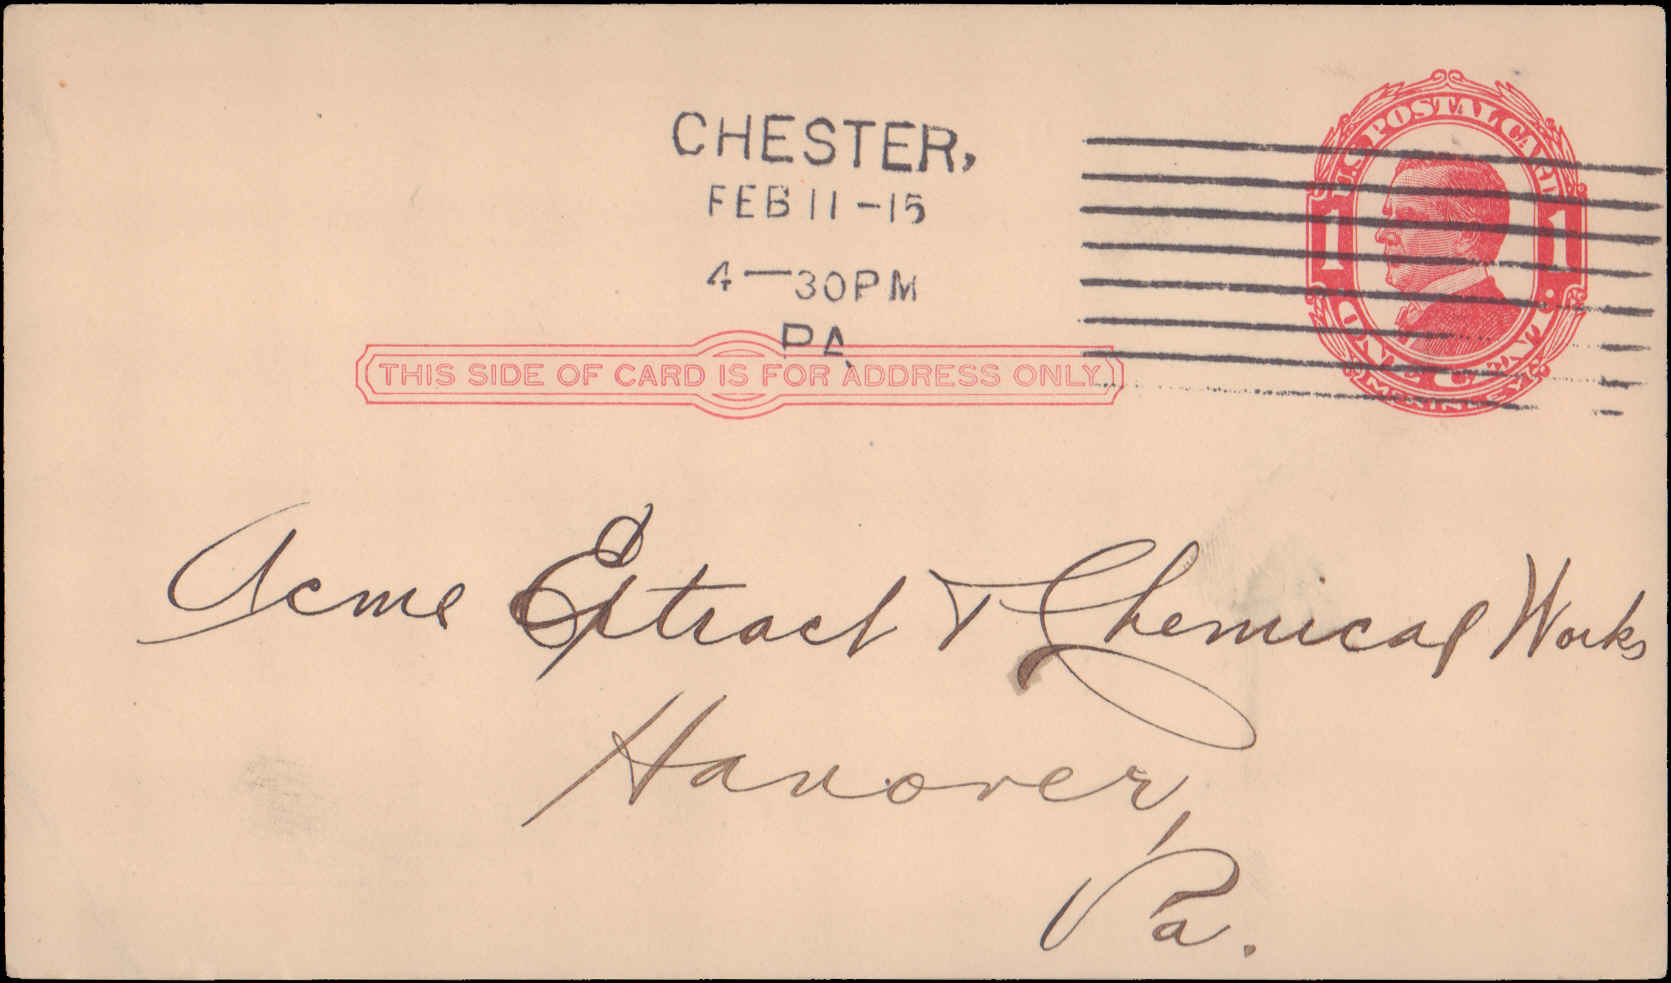 CHESTER,
FEB 11 - 15
4—30PM
PA
U.S. POSTAL CARD
1 1
ONE CENT
McKINLEY
THIS SIDE OF CARD IS FOR ADDRESS ONLY
Acme Extract & Chemical Works
Hanover,
Pa.